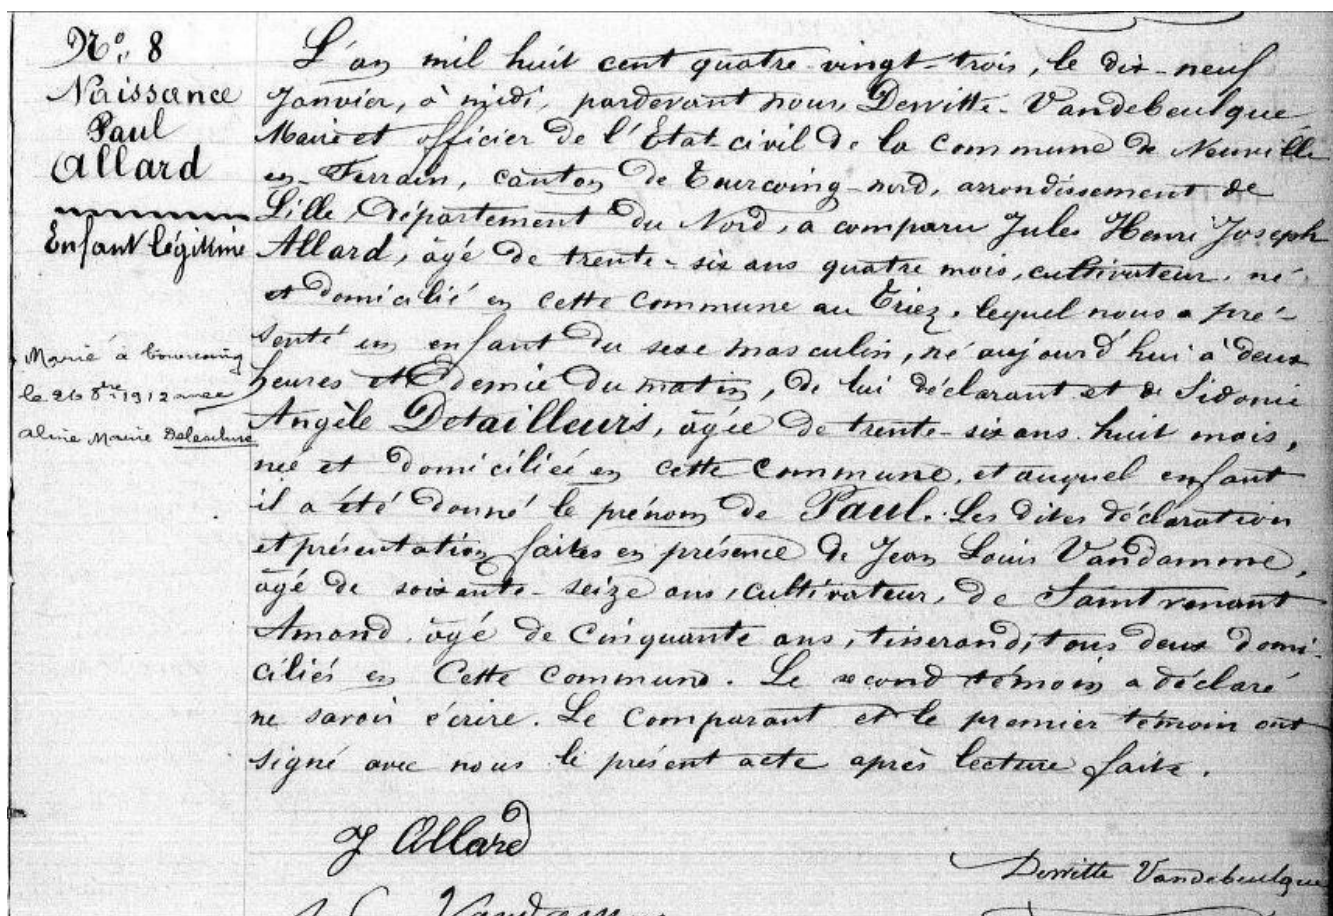 N.o 8
Naissance
Paul
Allard
Enfant légitime
Marié à tourcoing
le 26 8bre 1912 avec
aline Marie Delescluse
L'an mil huit cent quatre-vingt-trois, le dix-neuf
Janvier, à midi, pardevant nous, Dewitte-Vandebeulque,
Maire et officier de l'Etat-civil de la Commune de Neuville
en-Ferrain, canton de Tourcoing-nord, arrondissement de
Lille, Département du Nord, a comparu Jules Henri Joseph
Allard, âgé de trente-six ans quatre mois, cultivateur, né
et domicilié en cette commune au Triez, lequel nous a pré-
senté un enfant du sexe masculin, né aujourd'hui à deux
heures et demie du matin, de lui déclarant et de Sidonie
Angèle Detailleurs, âgée de trente-six ans huit mois,
née et domiciliée en cette commune, et auquel enfant
il a été donné le prénom de Paul. Les dites déclaration
et présentation faites en présence de Jean Louis Vandamme,
âgé de soixante-seize ans, cultivateur, de Saintvenant
Amand, âgé de cinquante ans, tisserand, tous deux domi-
ciliés en cette commune. Le second témoin a déclaré
ne savoir écrire. Le comparant et le premier témoin ont
signé avec nous le présent acte après lecture faite.
J Allard
Dewitte Vandebeulque